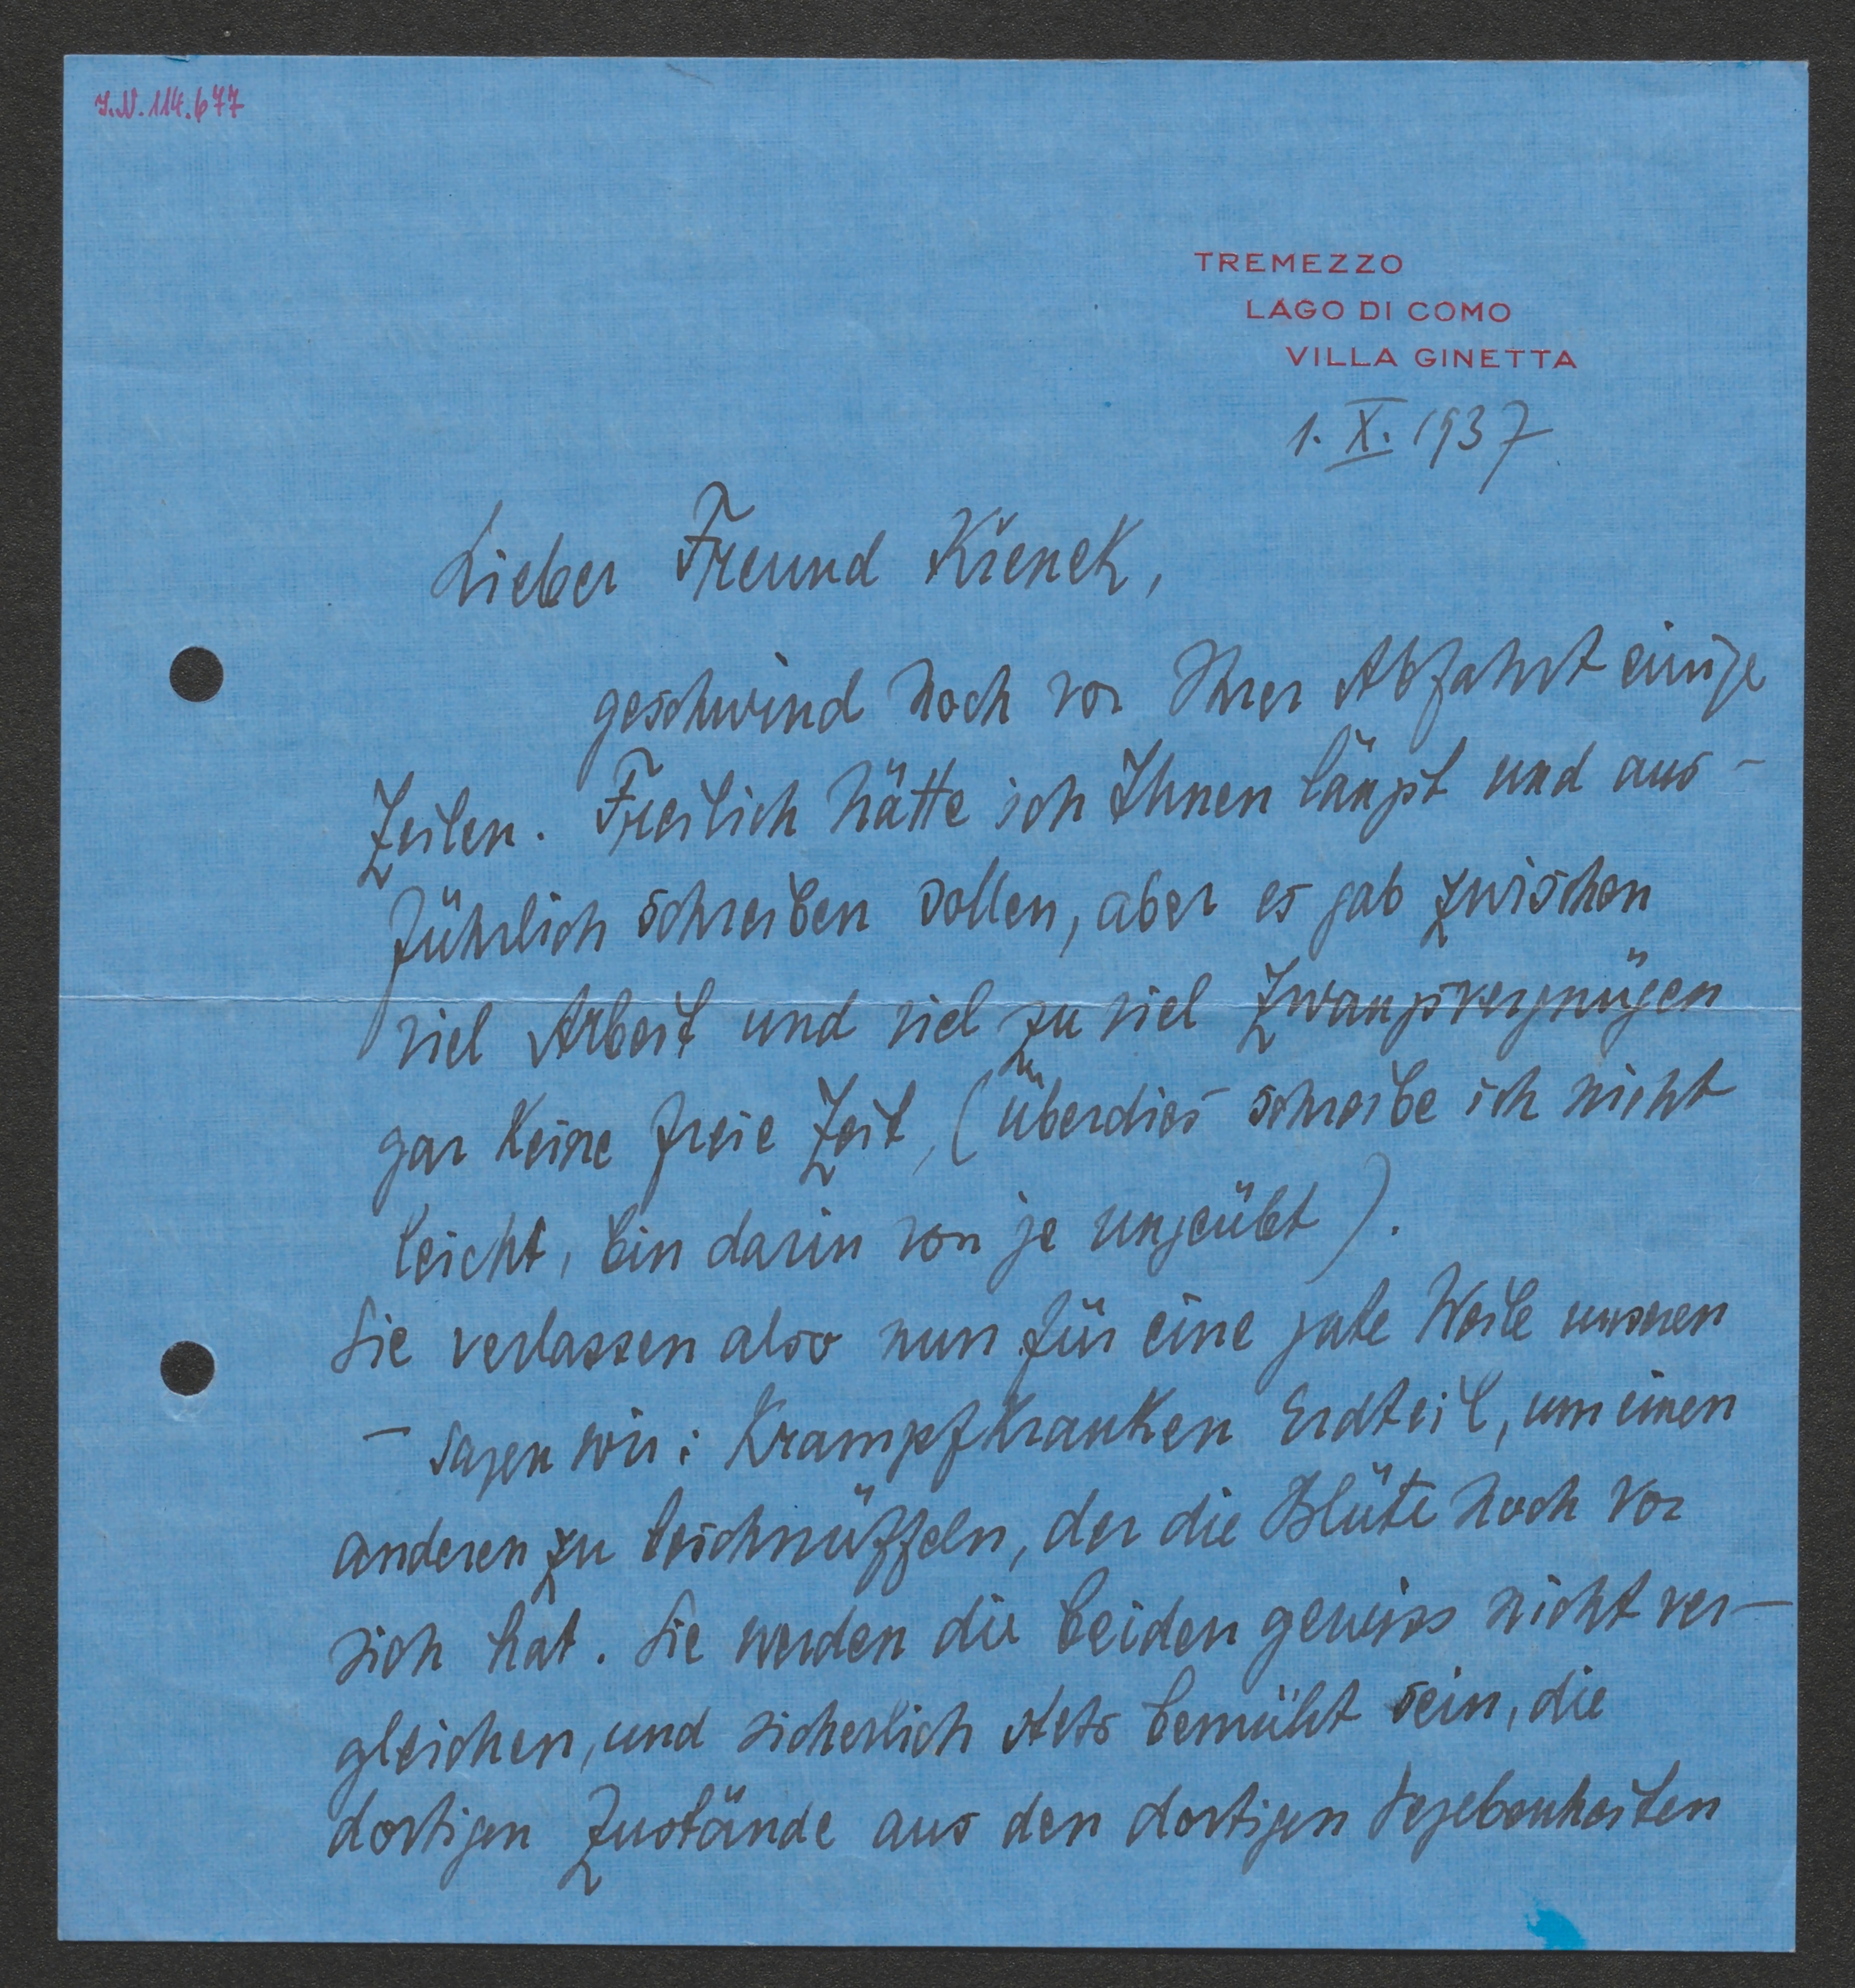 I.N. 114.677
TREMEZZO
LAGO DI COMO
VILLA GINETTA
1. X. 1937
Lieber Freund Křenek,
geschwind noch vor Ihrer Abfahrt einige
Zeilen. Freilich hätte ich Ihnen längst und aus-
führlich schreiben sollen, aber es gab zwischen
viel Arbeit und viel zu viel Zwangsvergnügen
gar keine freie Zeit, (überdies schreibe ich nicht
leicht, bin darin von je ungeübt).
Sie verlassen also nun für eine gute Weile unseren
– sagen wir: Krampfkranken Erdteil, um einen
anderen zu beschnüffeln, der die Blüte noch vor
sich hat. Sie werden die beiden gewiss nicht ver-
gleichen, und sicherlich stets bemüht sein, die
dortigen Zustände aus den dortigen Gegebenheiten